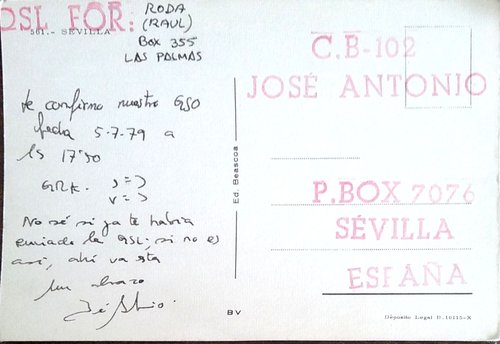 QSL FOR:
RODA
(RAUL)
Box 355
LAS PALMAS
561.- SEVILLA
Te confirmo nuestro QSO
fecha 5-7-79 a
las 17'30
QRK. S=5
V=5
No sé si ya te había
enviado la QSL; si no es
así, ahí va esta
Un abrazo
José Antonio.
Ed. Beascoa
BV
C.B-102
JOSÉ ANTONIO
P.BOX 7076
SÉVILLA
ESPAÑA
Depósito Legal B.